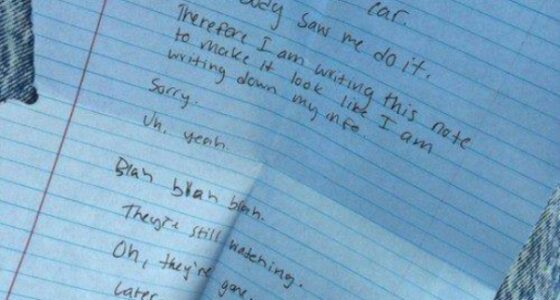 car.
body saw me do it.
Therefore I am writing this note
to make it look like I am
writing down my info.
Sorry.
Uh, yeah.
Blah blah blah.
They're still watching.
Oh, they're gone.
Later